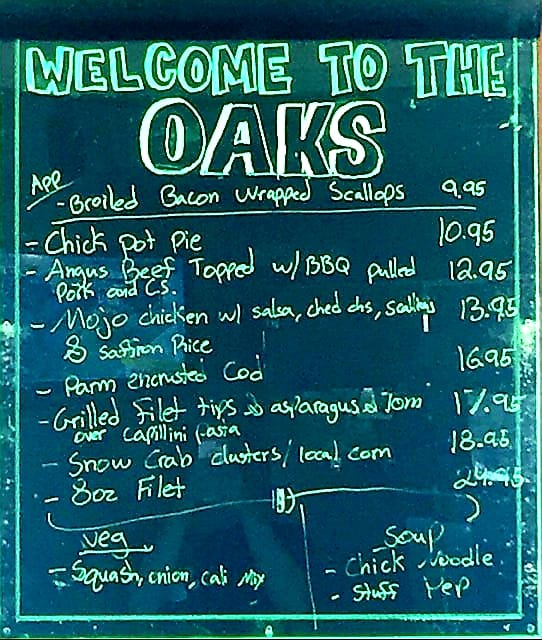 WELCOME TO THE
OAKS
App
- Broiled Bacon Wrapped Scallops 9.95
- Chick Pot Pie 10.95
- Angus Beef Topped w/ BBQ pulled 12.95
Pork and CS.
- Mojo chicken w/ salsa, ched chs, scallions 13.95
& saffron Rice
- Parm encrusted Cod 16.95
- Grilled Filet tips w asparagus & Tom 17.95
over Capillini Pasta
- Snow Crab clusters/ local corn 18.95
- 8oz Filet 24.95
Veg
- Squash, onion, cali Mix
Soup
- Chick Noodle
- Stuff Pep